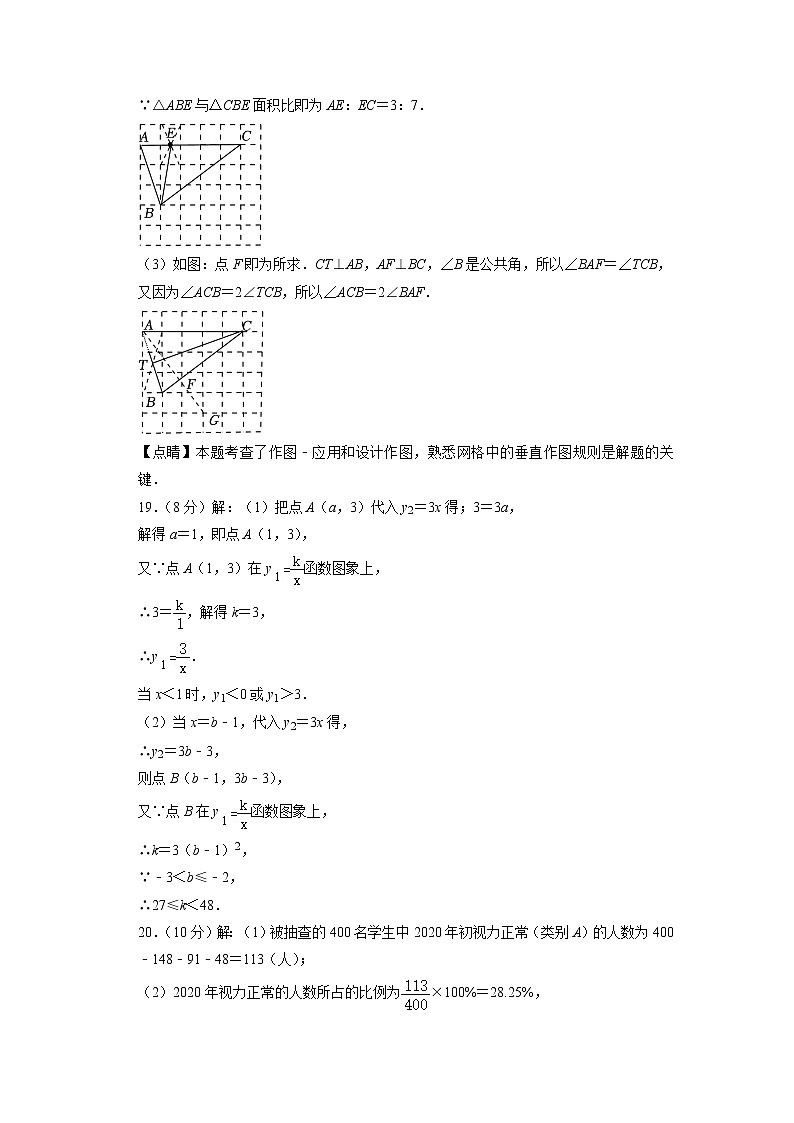 ∵△ABE与△CBE面积比即为AE：EC＝3：7．
A E C
B
（3）如图：点F即为所求．CT⊥AB，AF⊥BC，∠B是公共角，所以∠BAF＝∠TCB，
又因为∠ACB＝2∠TCB，所以∠ACB＝2∠BAF．
A C
T
F
B
G
【点睛】本题考查了作图﹣应用和设计作图，熟悉网格中的垂直作图规则是解题的关
键．
19.（8分）解：（1）把点A（a，3）代入y₂＝3x得；3＝3a，
解得a＝1，即点A（1，3），
又∵点A（1，3）在y₁=k/x函数图象上，
∴3＝k/1，解得k＝3，
∴y₁=3/x．
当x＜1时，y₁＜0或y₁＞3．
（2）当x＝b﹣1，代入y₂＝3x得，
∴y₂＝3b﹣3，
则点B（b﹣1，3b﹣3），
又∵点B在y₁=k/x函数图象上，
∴k＝3（b﹣1）²，
∵﹣3＜b≤﹣2，
∴27≤k＜48．
20.（10分）解：（1）被抽查的400名学生中2020年初视力正常（类别A）的人数为400
﹣148﹣91﹣48＝113（人）；
（2）2020年视力正常的人数所占的比例为113/400×100%＝28.25%，